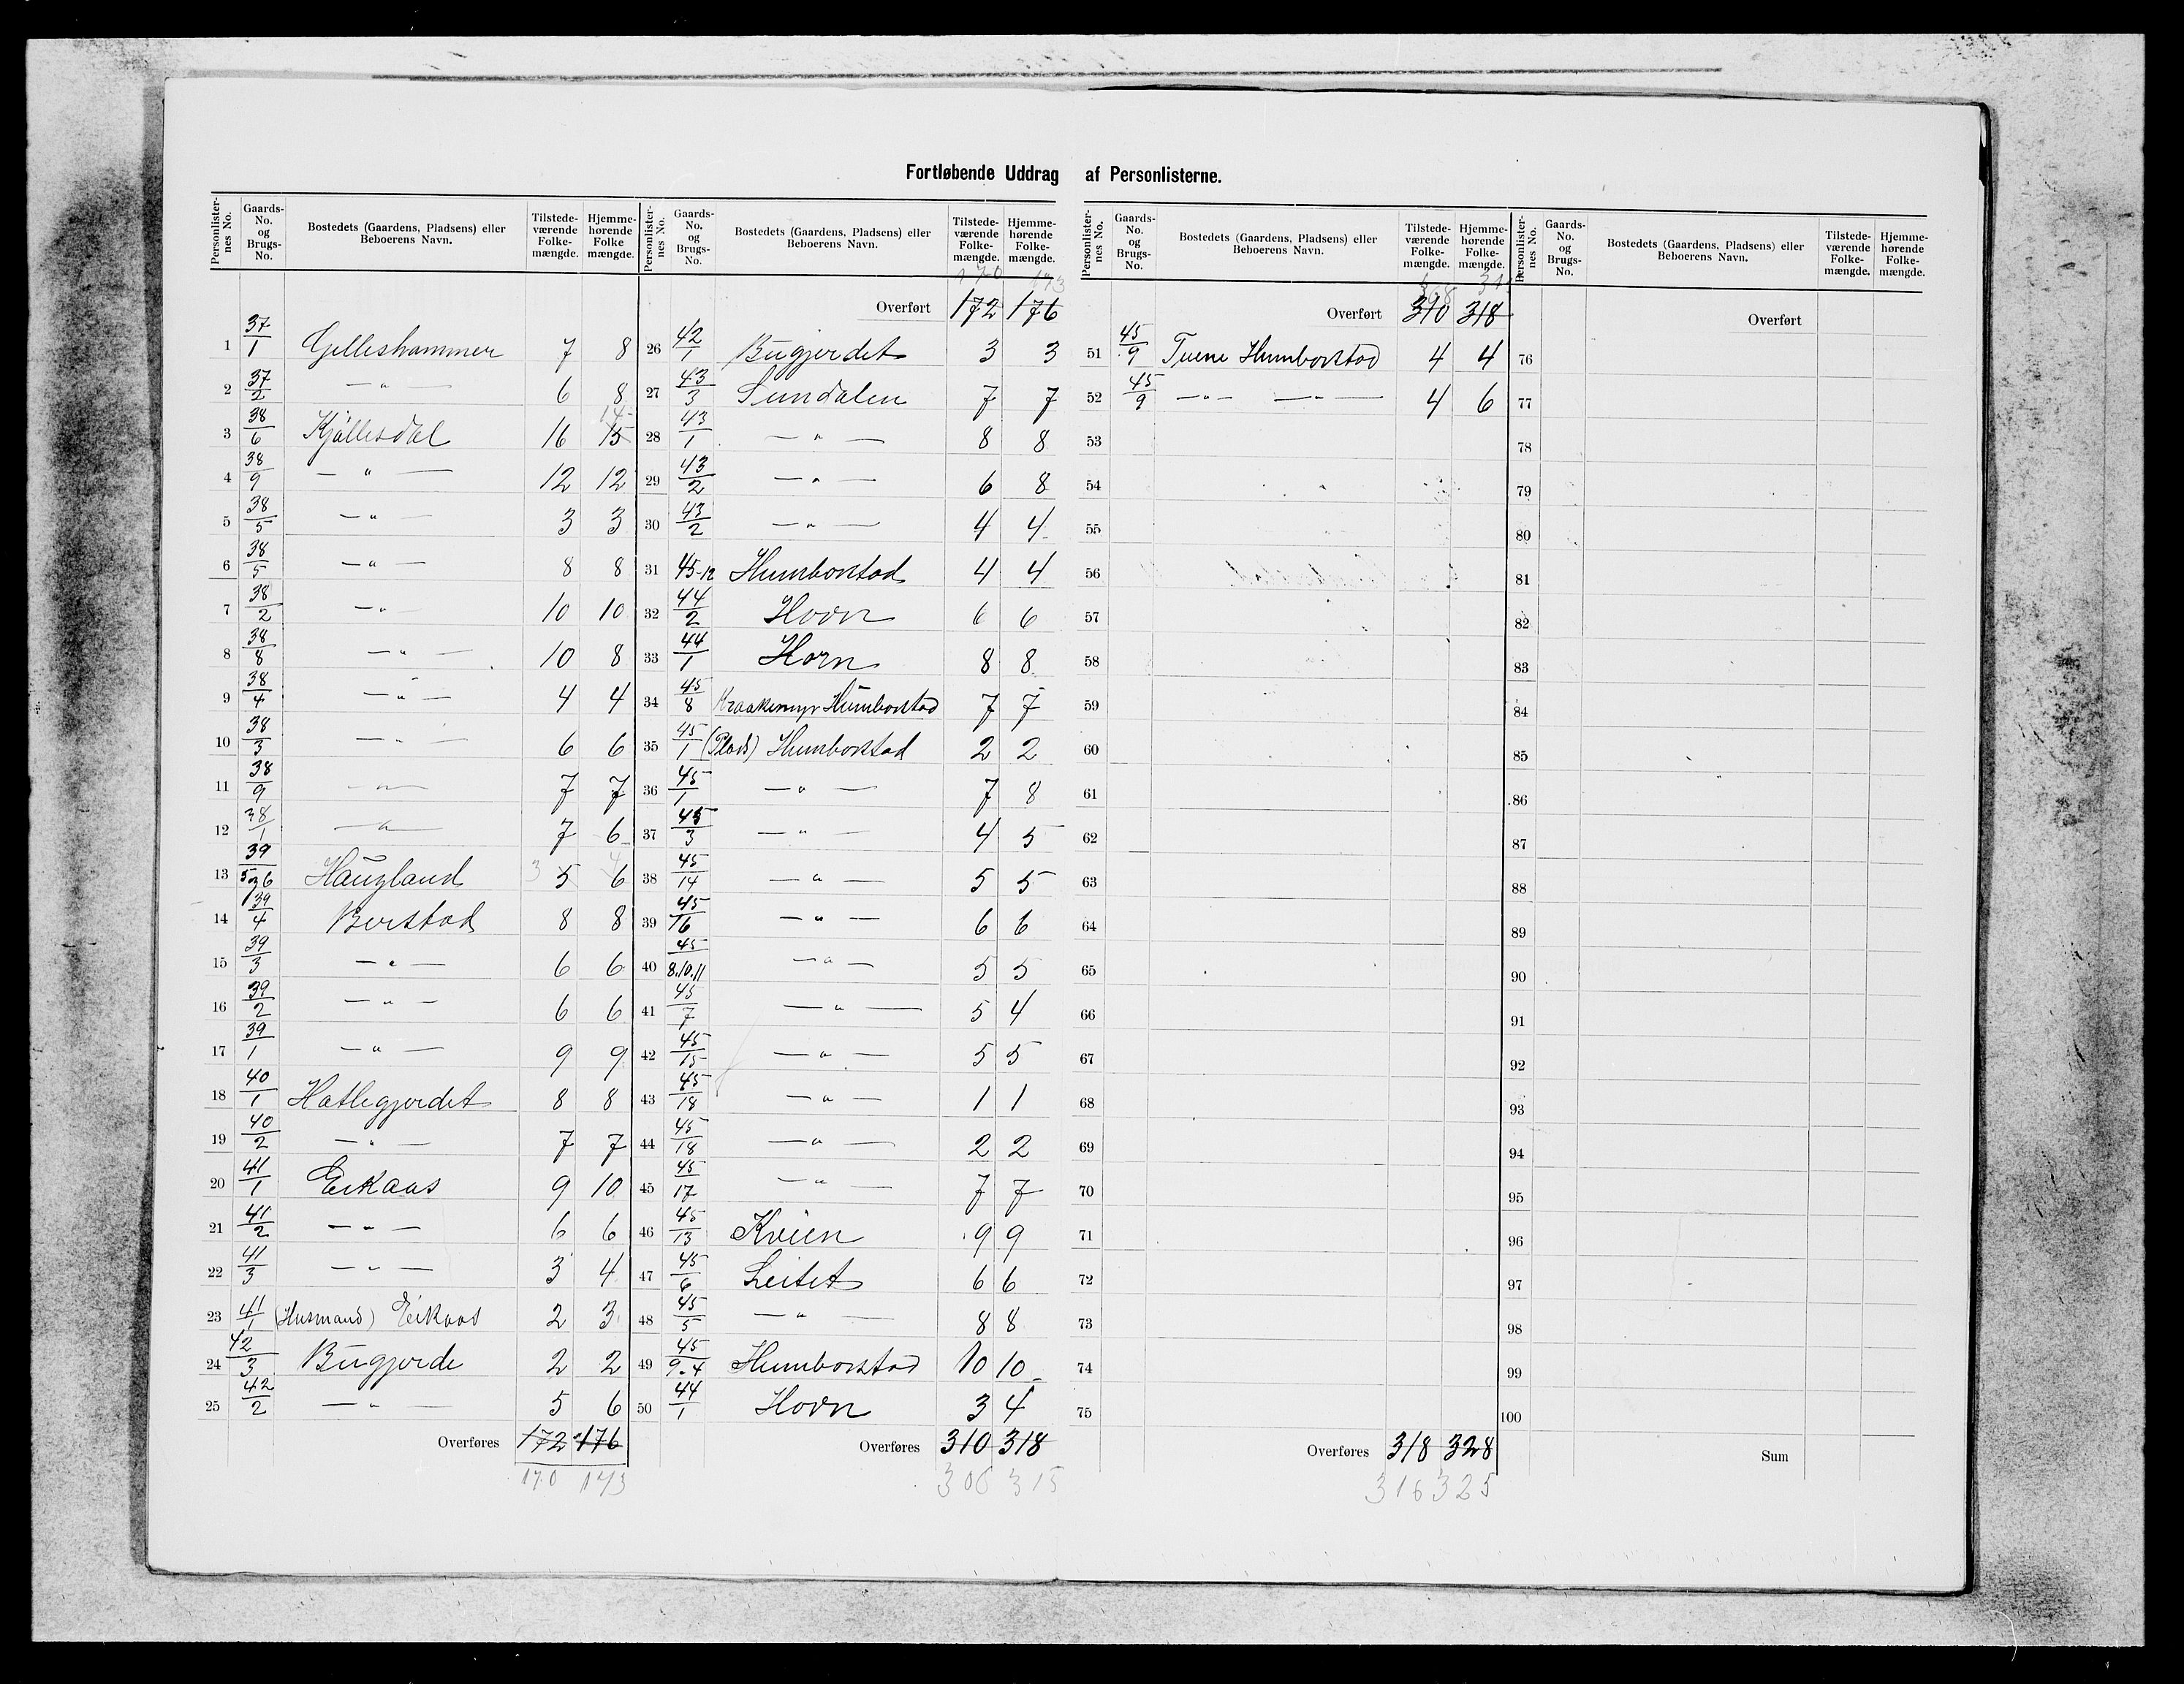 Fortløbende Uddrag af Personlisterne.
Personlister-nes No. Gaards-No. og Brugs-No. Bostedets (Gaardens, Pladsens) eller Beboerens Navn. Tilstede-værende Folke-mængde. Hjemme-hørende Folke mængde.
1 37/1 Gjelleshammer 7 8
2 37/2 — " — 6 8
3 38/6 Kjøllesdal 16 15 14
4 38/9 — " — 12 12
5 38/5 — " — 3 3
6 38/5 — " — 8 8
7 38/2 — " — 10 10
8 38/8 — " — 10 8
9 38/4 — " — 4 4
10 38/3 — " — 6 6
11 38/9 — " — 7 7
12 38/1 — " — 7 6
13 39/5 og 6 Haugland 3 5 4 6
14 39/4 Berstad 8 8
15 39/3 — " — 6 6
16 39/2 — " — 6 6
17 39/1 — " — 9 9
18 40/1 Hatlegjerdet 8 8
19 40/2 — " — 7 7
20 41/1 Eikaas 9 10
21 41/2 — " — 6 6
22 41/3 — " — 3 4
23 41/1 (Husmand) Eikaas 2 3
24 42/3 Bugjerde 2 2
25 42/2 — " — 5 6
Overføres 172 176
170 173
Personlister-nes No. Gaards-No. og Brugs-No. Bostedets (Gaardens, Pladsens) eller Beboerens Navn. Tilstede-værende Folke-mængde. Hjemme-hørende Folke-mængde.
170 173
Overført 172 176
26 42/1 Bugjerdet 3 3
27 43/3 Sundalen 7 7
28 43/1 — " — 8 8
29 43/2 — " — 6 8
30 43/2 — " — 4 4
31 45-12 Humborstad 4 4
32 44/2 Horn 6 6
33 44/1 Horn 8 8
34 45/8 Kraakemyr Humborstad 7 7
35 45/1 (Plads) Humborstad 2 2
36 45/1 — " — 7 8
37 45/3 — " — 4 5
38 45/14 — " — 5 5
39 45/16 — " — 6 6
40 45/8.10.11 — " — 5 5
41 45/7 — " — 5 4
42 45/15 — " — 5 5
43 45/18 — " — 1 1
44 45/18 — " — 2 2
45 45/17 — " — 7 7
46 45/13 Kveien 9 9
47 45/6 Leitet 6 6
48 45/5 — " — 8 8
49 45/9-4 Humborstad 10 10
50 44/1 Horn 3 4
Overføres 310 318
306 315
Personlister-nes No. Gaards-No. og Brugs-No. Bostedets (Gaardens, Pladsens) eller Beboerens Navn. Tilstede-værende Folke-mængde. Hjemme-hørende Folke-mængde.
Overført 310 318
51 45/9 Tuene Humborstad 4 4
52 45/9 — " — — " — 4 6
53
54
55
56
57
58
59
60
61
62
63
64
65
66
67
68
69
70
71
72
73
74
75
Overføres 318 328
316 325
Personlister-nes No. Gaards-No. og Brugs-No. Bostedets (Gaardens, Pladsens) eller Beboerens Navn. Tilstede-værende Folke-mængde. Hjemme-hørende Folke-mængde.
Overført
76
77
78
79
80
81
82
83
84
85
86
87
88
89
90
91
92
93
94
95
96
97
98
99
100
Sum